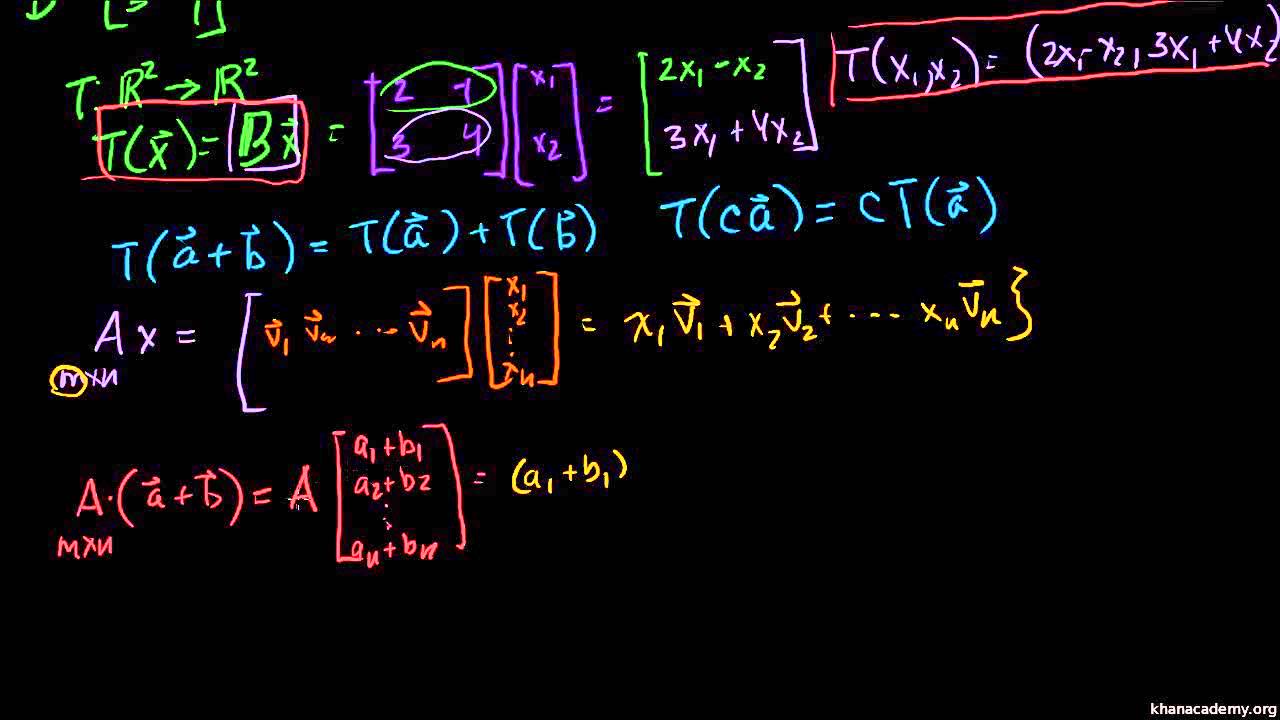 T: ℝ² → ℝ²
T(x⃗) = Bx⃗ = [2 -1; 3 4] [x₁; x₂] = [2x₁ - x₂; 3x₁ + 4x₂]
T(x₁, x₂) = (2x₁ - x₂, 3x₁ + 4x₂
T(a⃗ + b⃗) = T(a⃗) + T(b⃗)
T(ca⃗) = cT(a⃗)
Ax = [v⃗₁ v⃗ₙ ... v⃗ₙ] [x₁; x₂; ⋮; xₙ] = x₁v⃗₁ + x₂v⃗₂ + ... xₙv⃗ₙ}
m×n
A·(a⃗ + b⃗) = A [a₁ + b₁; a₂ + b2; ⋮; aₙ + bₙ] = (a₁ + b₁)
m×n
khanacademy.org